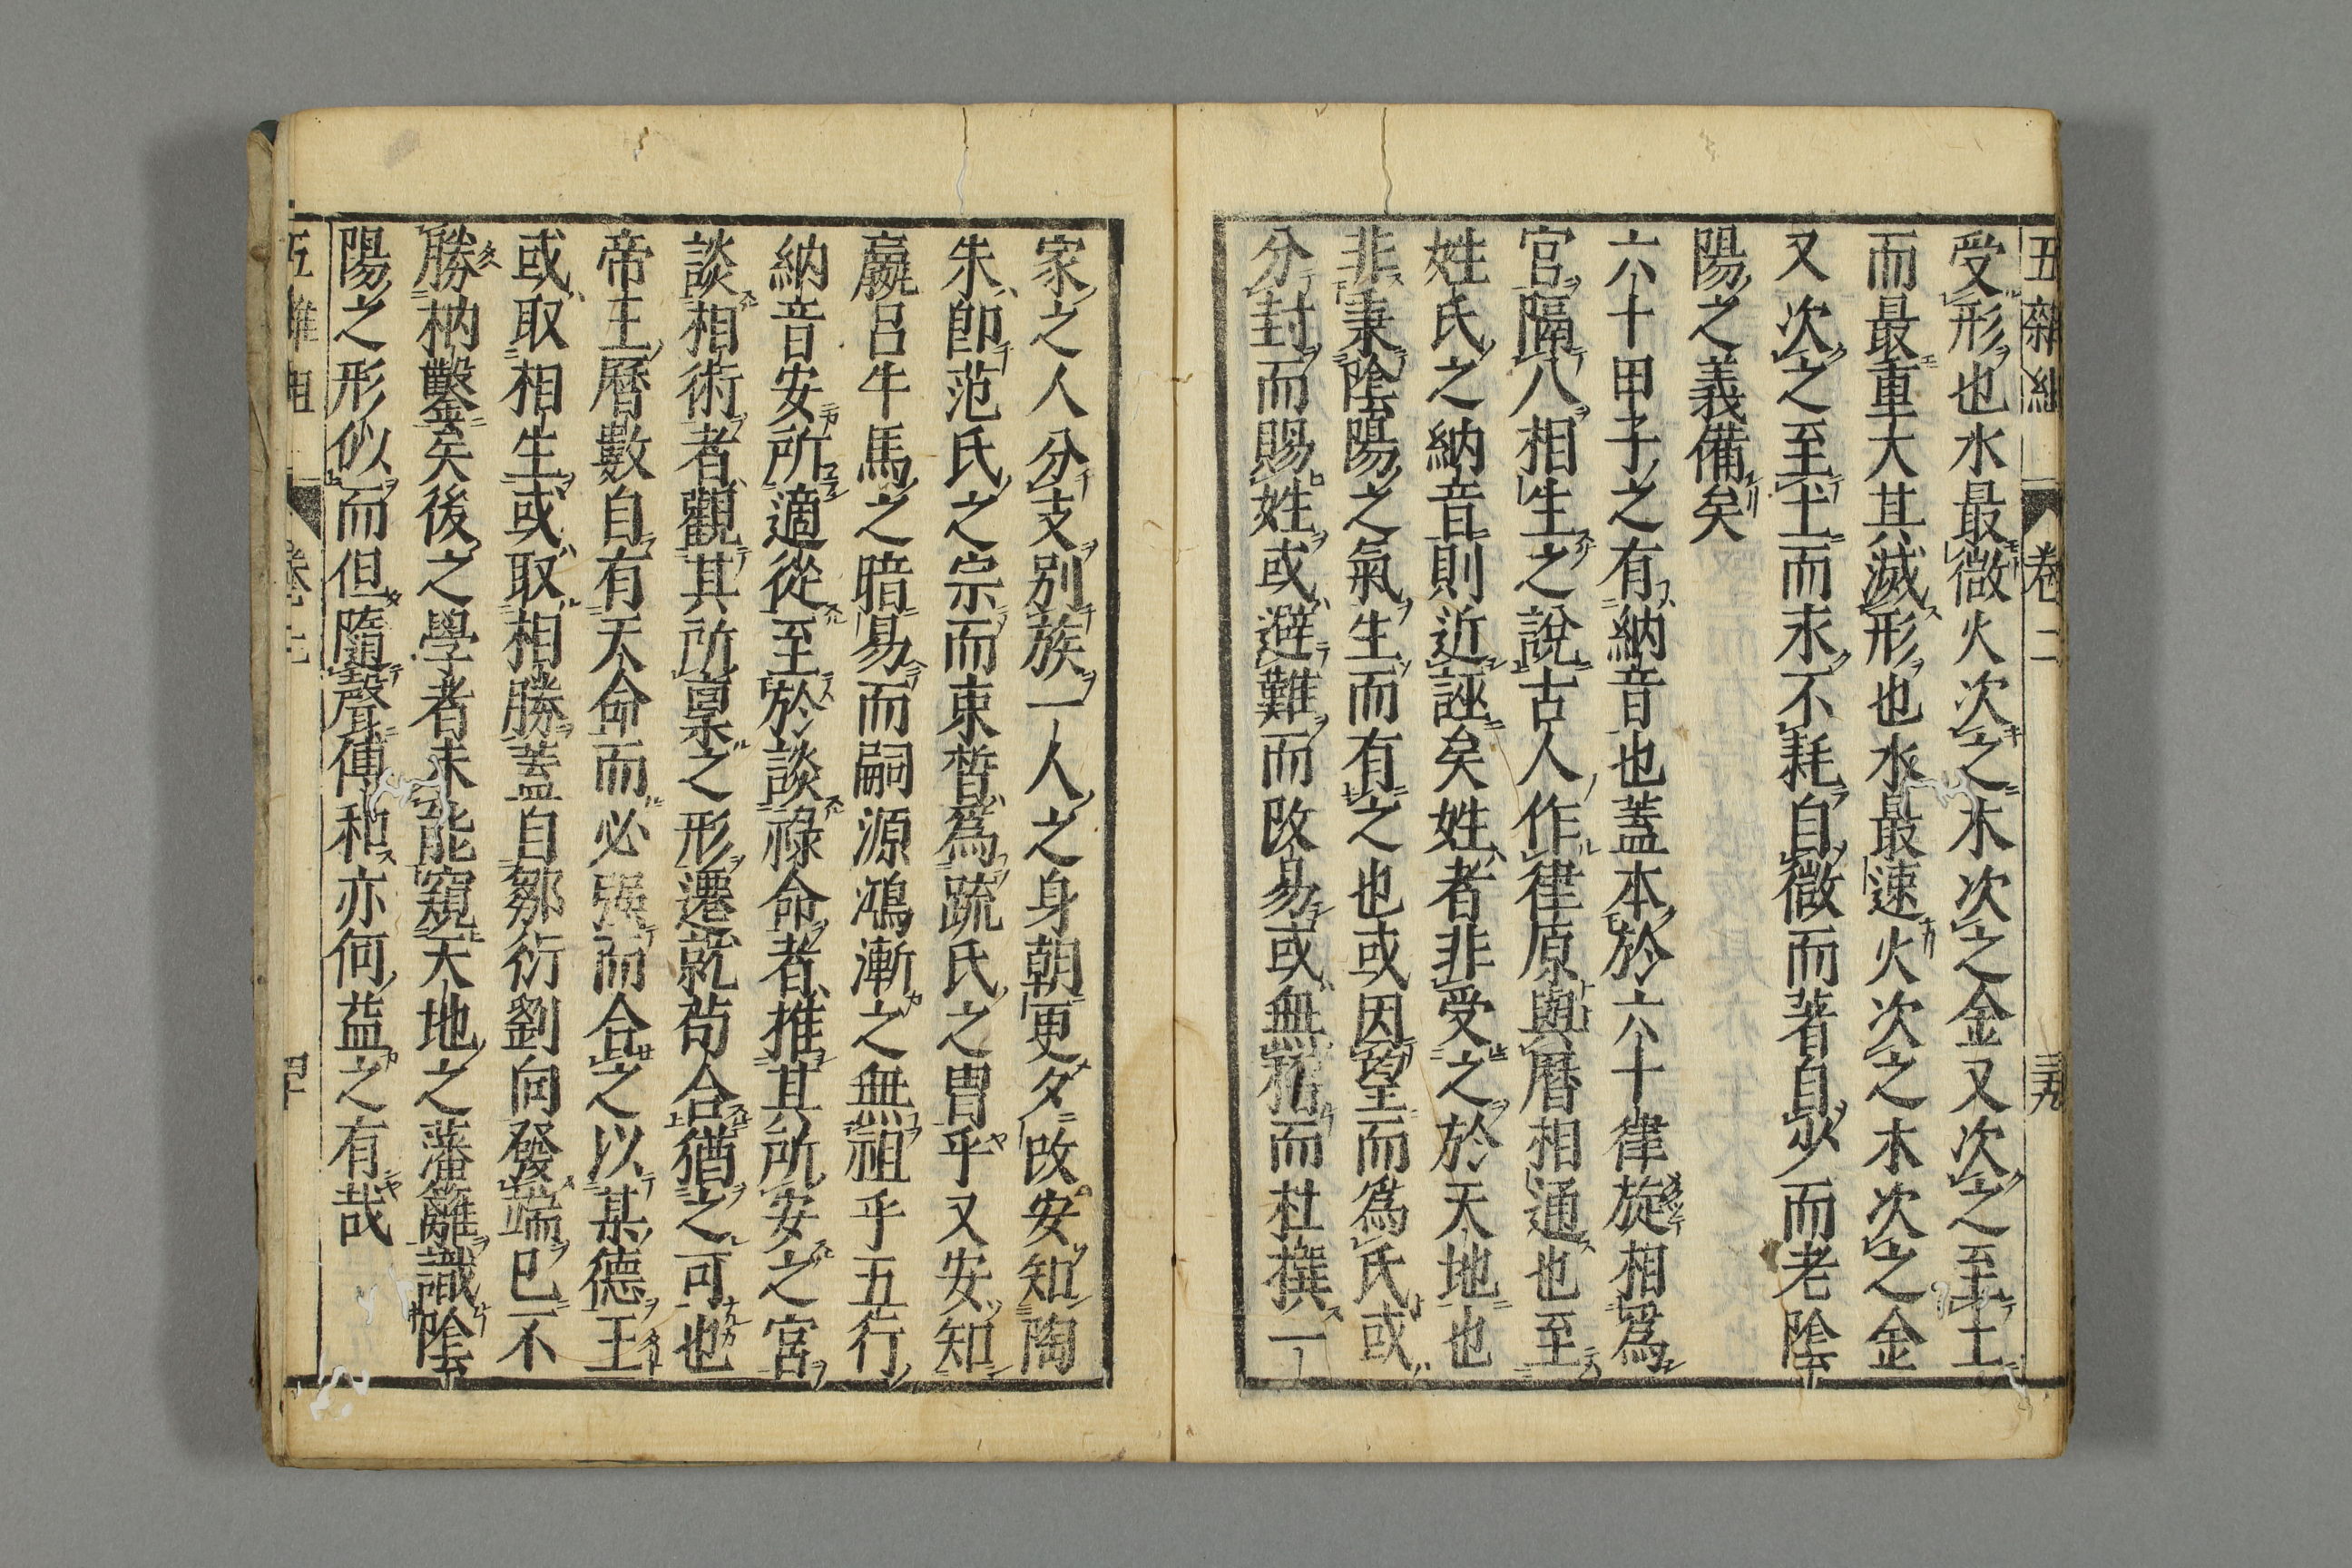 五雜組 卷二 三九
受形也水最微火次之木次之金又次之至土
而最重大其滅形也水最速火次之木次之金
又次之至土而永不耗自微而著自少而老陰
陽之義備矣
六十甲子之有納音也蓋本於六十律旋相爲
宮隔八相生之說古人作律原與曆相通也至
姓氏之納音則近誣矣姓者非受之於天地也
非秉陰陽之氣生而有之也或因望而爲氏或
分封而賜姓或避難而改易或無稽而杜撰一
家之人分支別族一人之身朝更夕改安知陶
朱卽范氏之宗而束晳爲疏氏之胄乎又安知
嬴呂牛馬之暗易而嗣源鴻漸之無祖乎五行
納音安所適從至於談祿命者推其所安之宮
談相術者觀其所稟之形遷就苟合猶之可也
帝王曆數自有天命而必强而合之以某德王
或取相生或取相勝蓋自鄒衍劉向發端已不
勝枘鑿矣後之學者未能窺天地之藩籬識陰
陽之形似而但隨聲傅和亦何益之有哉
五雜組 卷之 四十